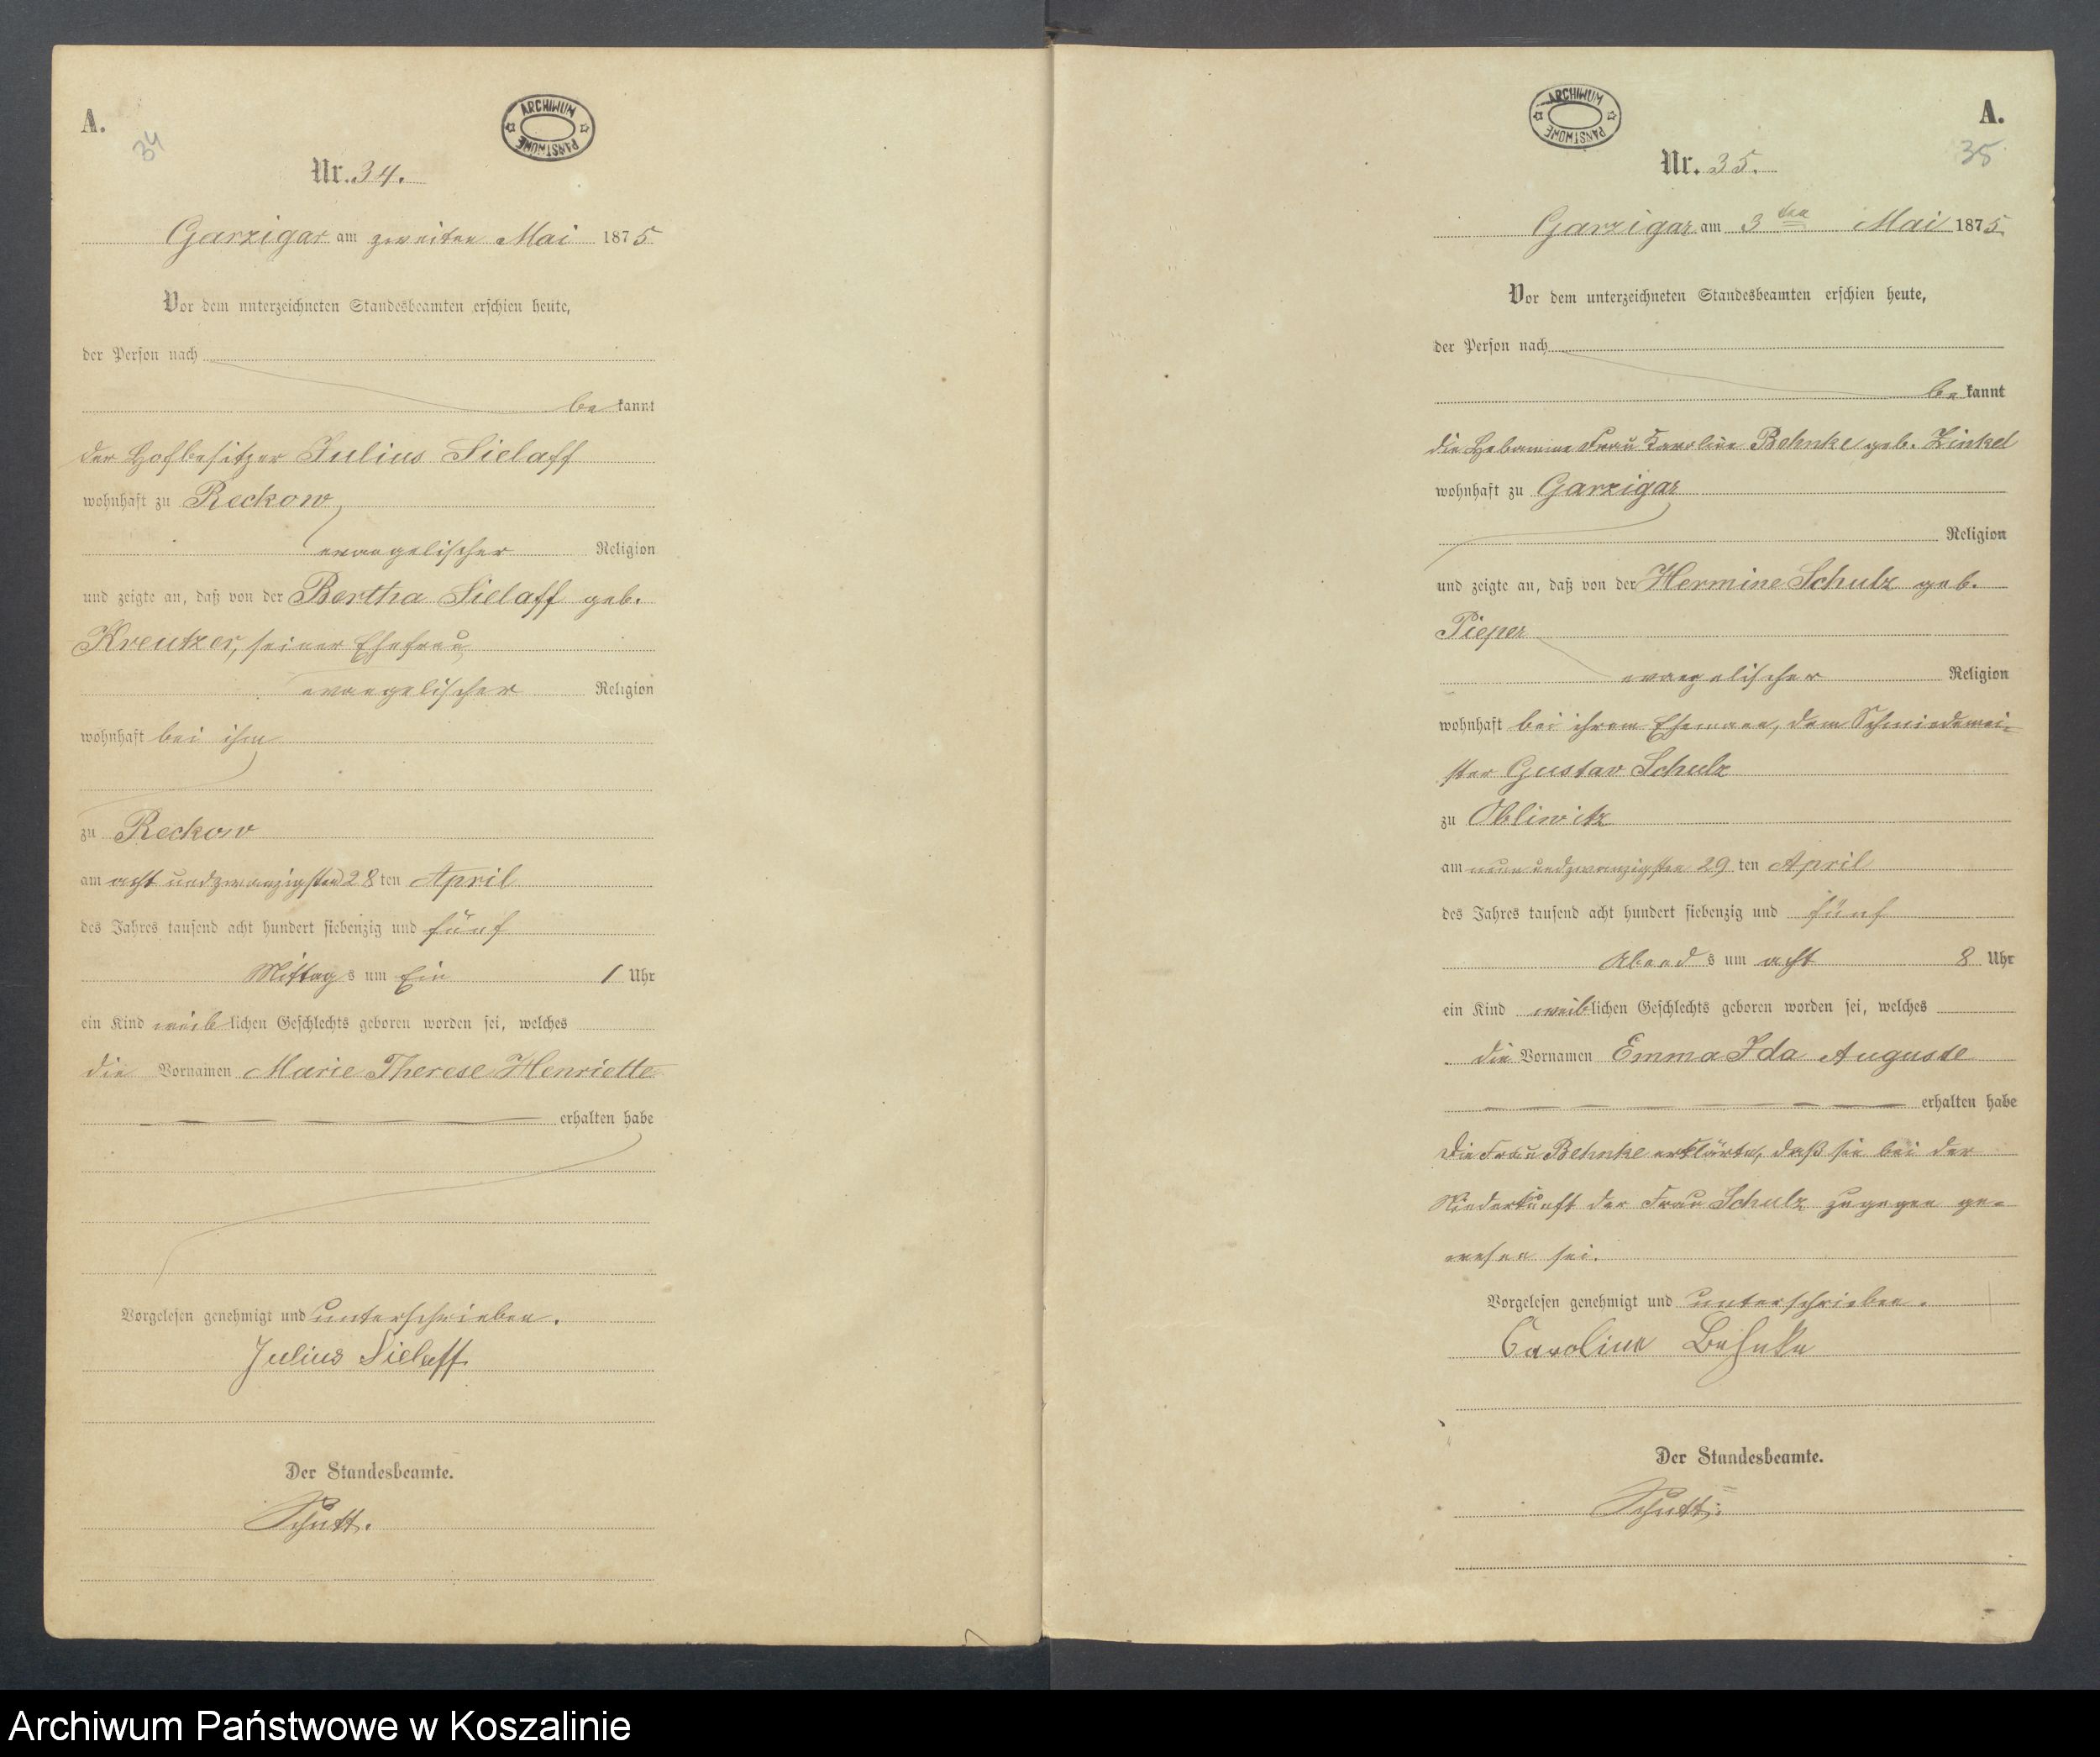 A.
34
ARCHIWUM PAŃSTWOWE
Nr. 34.
Garzigar am zweiten Mai 1875
Vor dem unterzeichneten Standesbeamten erschien heute,
der Person nach
bekannt
der Hofbesitzer Julius Sielaff
wohnhaft zu Reckow,
evangelischer Religion
und zeigte an, daß von der Bertha Sielaff geb.
Kreutzer, seiner Ehefrau
evangelischer Religion
wohnhaft bei ihm
zu Reckow
am acht und zwanzigsten 28ten April
des Jahres tausend acht hundert siebenzig und fünf
Mittags um Ein 1 Uhr
ein Kind weiblichen Geschlechts geboren worden sei, welches
die Vornamen Marie Therese Henriette
erhalten habe
Vorgelesen genehmigt und unterschrieben.
Julius Sielaff
Der Standesbeamte.
Schutt.
ARCHIWUM PAŃSTWOWE
A.
35
Nr. 35.
Garzigar am 3ten Mai 1875
Vor dem unterzeichneten Standesbeamten erschien heute,
der Person nach
bekannt
die Hebamme Frau Karoline Behnke geb. Zinkel
wohnhaft zu Garzigar
Religion
und zeigte an, daß von der Hermine Schulz geb.
Pieper
evangelischer Religion
wohnhaft bei ihrem Ehemann, dem Schmiedemei-
ster Gustav Schulz
zu Obliwitz
am neun und zwanzigsten 29 ten April
des Jahres tausend acht hundert siebenzig und fünf
Abends um acht 8 Uhr
ein Kind weiblichen Geschlechts geboren worden sei, welches
die Vornamen Emma Ida Auguste
erhalten habe
Die Frau Behnke erklärte, daß sie bei der
Niederkunft der Frau Schulz zugegen ge-
wesen sei.
Vorgelesen genehmigt und unterschrieben.
Caroline Behnke
Der Standesbeamte.
Schutt.
Archiwum Państwowe w Koszalinie